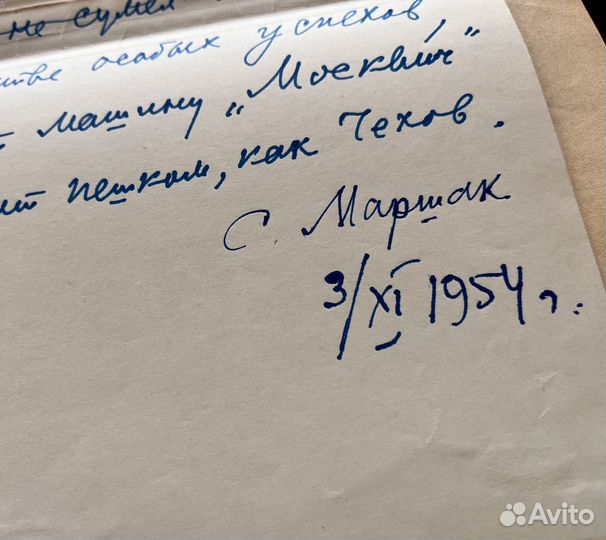 не сумел
особых успехов,
машину „Москвич"
пешком, как Чехов.
С. Маршак
3/XI 1954 г.
Avito